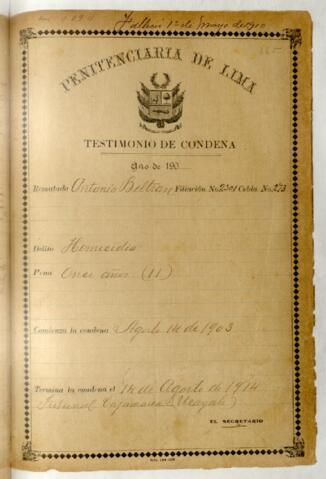 Falleció 1º de Mayo de 1910
PENITENCIARIA DE LIMA
TESTIMONIO DE CONDENA
Año de 190
Rematado Antonio Beltran Filiación No. 2301 Celda No. 273
Delito Homicidio
Pena Once años (11)
Comienza la condena Agosto 14 de 1903
Termina la condena el 14 de Agosto de 1914
Tribunal Cajamarca
EL SECRETARIO